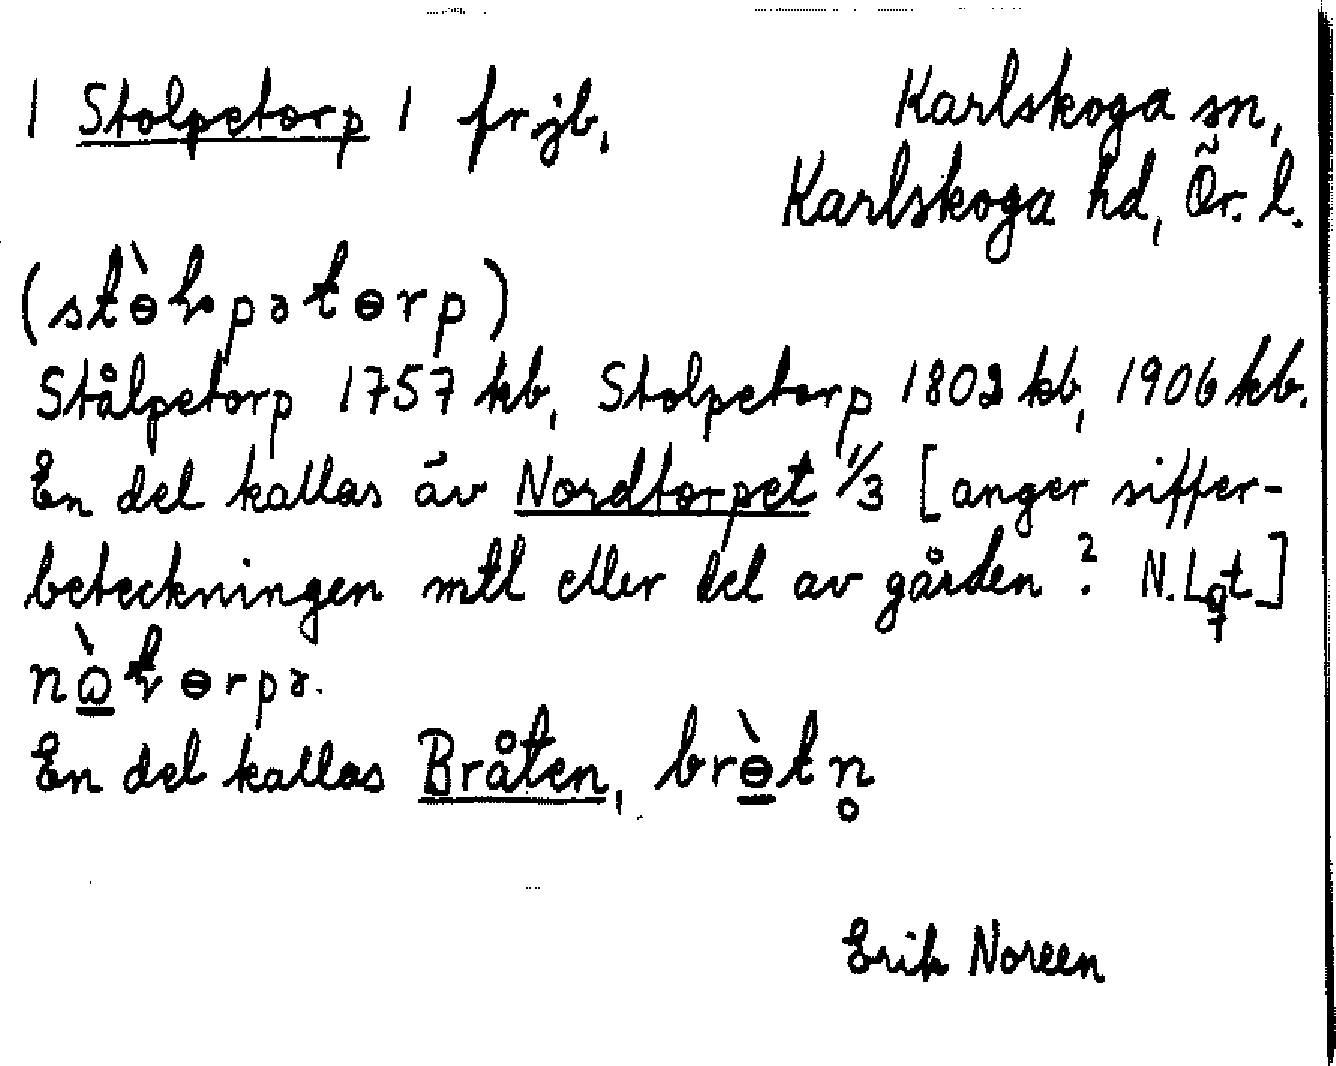 1 Stolpetorp 1 frjb, Karlskoga sn,
Karlskoga hd, Ör. l.
(stɵ̀ɽpətɵrp)
Stålpetorp 1757 kb, Stolpetorp 1802 kb, 1906 kb.
En del kallas äv Nordtorpet 1/3 [anger siffer-
beteckningen mtl eller del av gården? N. Lqt.]
En del kallas Bråten, brɵ̀tn̥
Erik Noreen